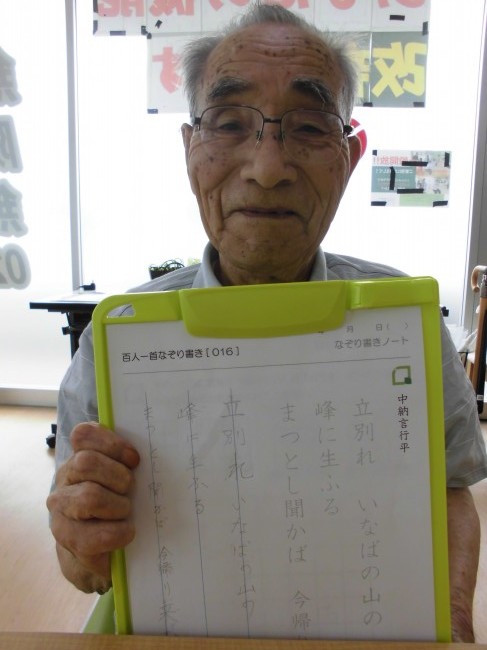 百人一首なぞり書き[016]
月 日( )
なぞり書きノート
中納言行平
立別れ いなばの山の
峰に生ふる
まつとし聞かば 今帰
立別れ いなばの山の
峰に生ふる
まつとし聞かば 今帰り来
改善
す